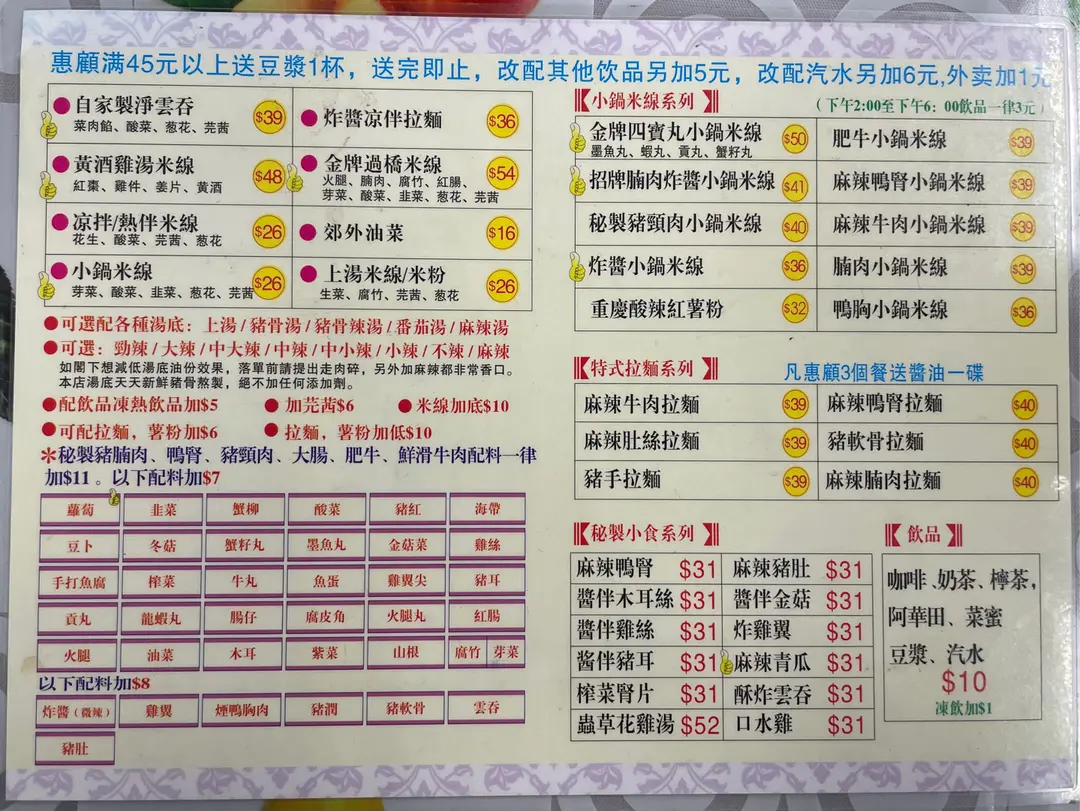 惠顧满45元以上送豆漿1杯，送完即止，改配其他饮品另加5元，改配汽水另加6元,外卖加1元
自家製淨雲吞 $39
菜肉餡、酸菜、葱花、芫茜
炸醬凉伴拉麵 $36
黃酒雞湯米線 $48
紅棗、雞件、姜片、黃酒
金牌過橋米線 $54
火腿、腩肉、腐竹、紅腸、
芽菜、酸菜、韭菜、葱花、芫茜
凉拌/熱伴米線 $26
花生、酸菜、芫茜、葱花
郊外油菜 $16
小鍋米線 $26
芽菜、酸菜、韭菜、葱花、芫茜
上湯米線/米粉 $26
生菜、腐竹、芫茜、葱花
●可選配各種湯底：上湯/豬骨湯/豬骨辣湯/番茄湯/麻辣湯
●可選：勁辣/大辣/中大辣/中辣/中小辣/小辣/不辣/麻辣
如閣下想減低湯底油份效果，落單前請提出走肉碎，另外加麻辣都非常香口。
本店湯底天天新鮮豬骨熬製，絕不加任何添加劑。
●配飲品凍熱飲品加$5 ●加芫茜$6 ●米線加底$10
●可配拉麵，薯粉加$6 ●拉麵，薯粉加低$10
＊秘製豬腩肉、鴨腎、豬頸肉、大腸、肥牛、鮮滑牛肉配料一律
加$11 。以下配料加$7
蘿蔔 韭菜 蟹柳 酸菜 豬紅 海帶
豆卜 冬菇 蟹籽丸 墨魚丸 金菇菜 雞絲
手打魚腐 榨菜 牛丸 魚蛋 雞翼尖 豬耳
貢丸 龍蝦丸 腸仔 腐皮角 火腿丸 紅腸
火腿 油菜 木耳 紫菜 山根 腐竹 芽菜
以下配料加$8
炸醬（微辣） 雞翼 煙鴨胸肉 豬潤 豬軟骨 雲吞
豬肚
【小鍋米線系列】
（下午2:00至下午6：00飲品一律3元）
金牌四寶丸小鍋米線 $50
墨魚丸、蝦丸、貢丸、蟹籽丸
肥牛小鍋米線 $39
招牌腩肉炸醬小鍋米線 $41
麻辣鴨腎小鍋米線 $39
秘製豬頸肉小鍋米線 $40
麻辣牛肉小鍋米線 $39
炸醬小鍋米線 $36
腩肉小鍋米線 $39
重慶酸辣紅薯粉 $32
鴨胸小鍋米線 $36
【特式拉麵系列】 凡惠顧3個餐送醬油一碟
麻辣牛肉拉麵 $39 麻辣鴨腎拉麵 $40
麻辣肚絲拉麵 $39 豬軟骨拉麵 $40
豬手拉麵 $39 麻辣腩肉拉麵 $40
【秘製小食系列】
麻辣鴨腎 $31 麻辣豬肚 $31
醬伴木耳絲 $31 醬伴金菇 $31
醬伴雞絲 $31 炸雞翼 $31
酱伴豬耳 $31 麻辣青瓜 $31
榨菜腎片 $31 酥炸雲吞 $31
蟲草花雞湯 $52 口水雞 $31
【飲品】
咖啡、奶茶、檸茶，
阿華田、菜蜜
豆漿、汽水
$10
凍飲加$1